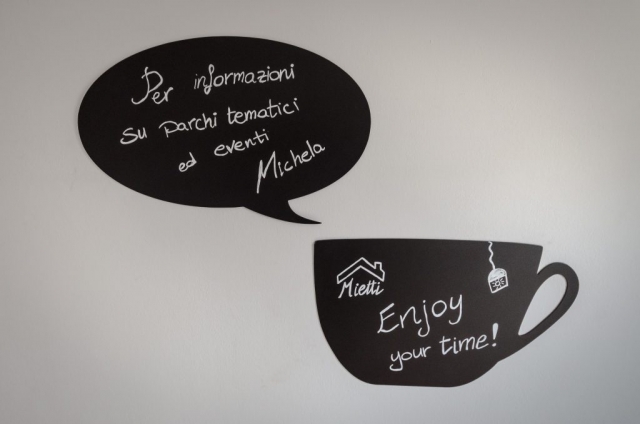 Per informazioni
su parchi tematici
ed eventi
Michela
Mietti
Enjoy
your time!